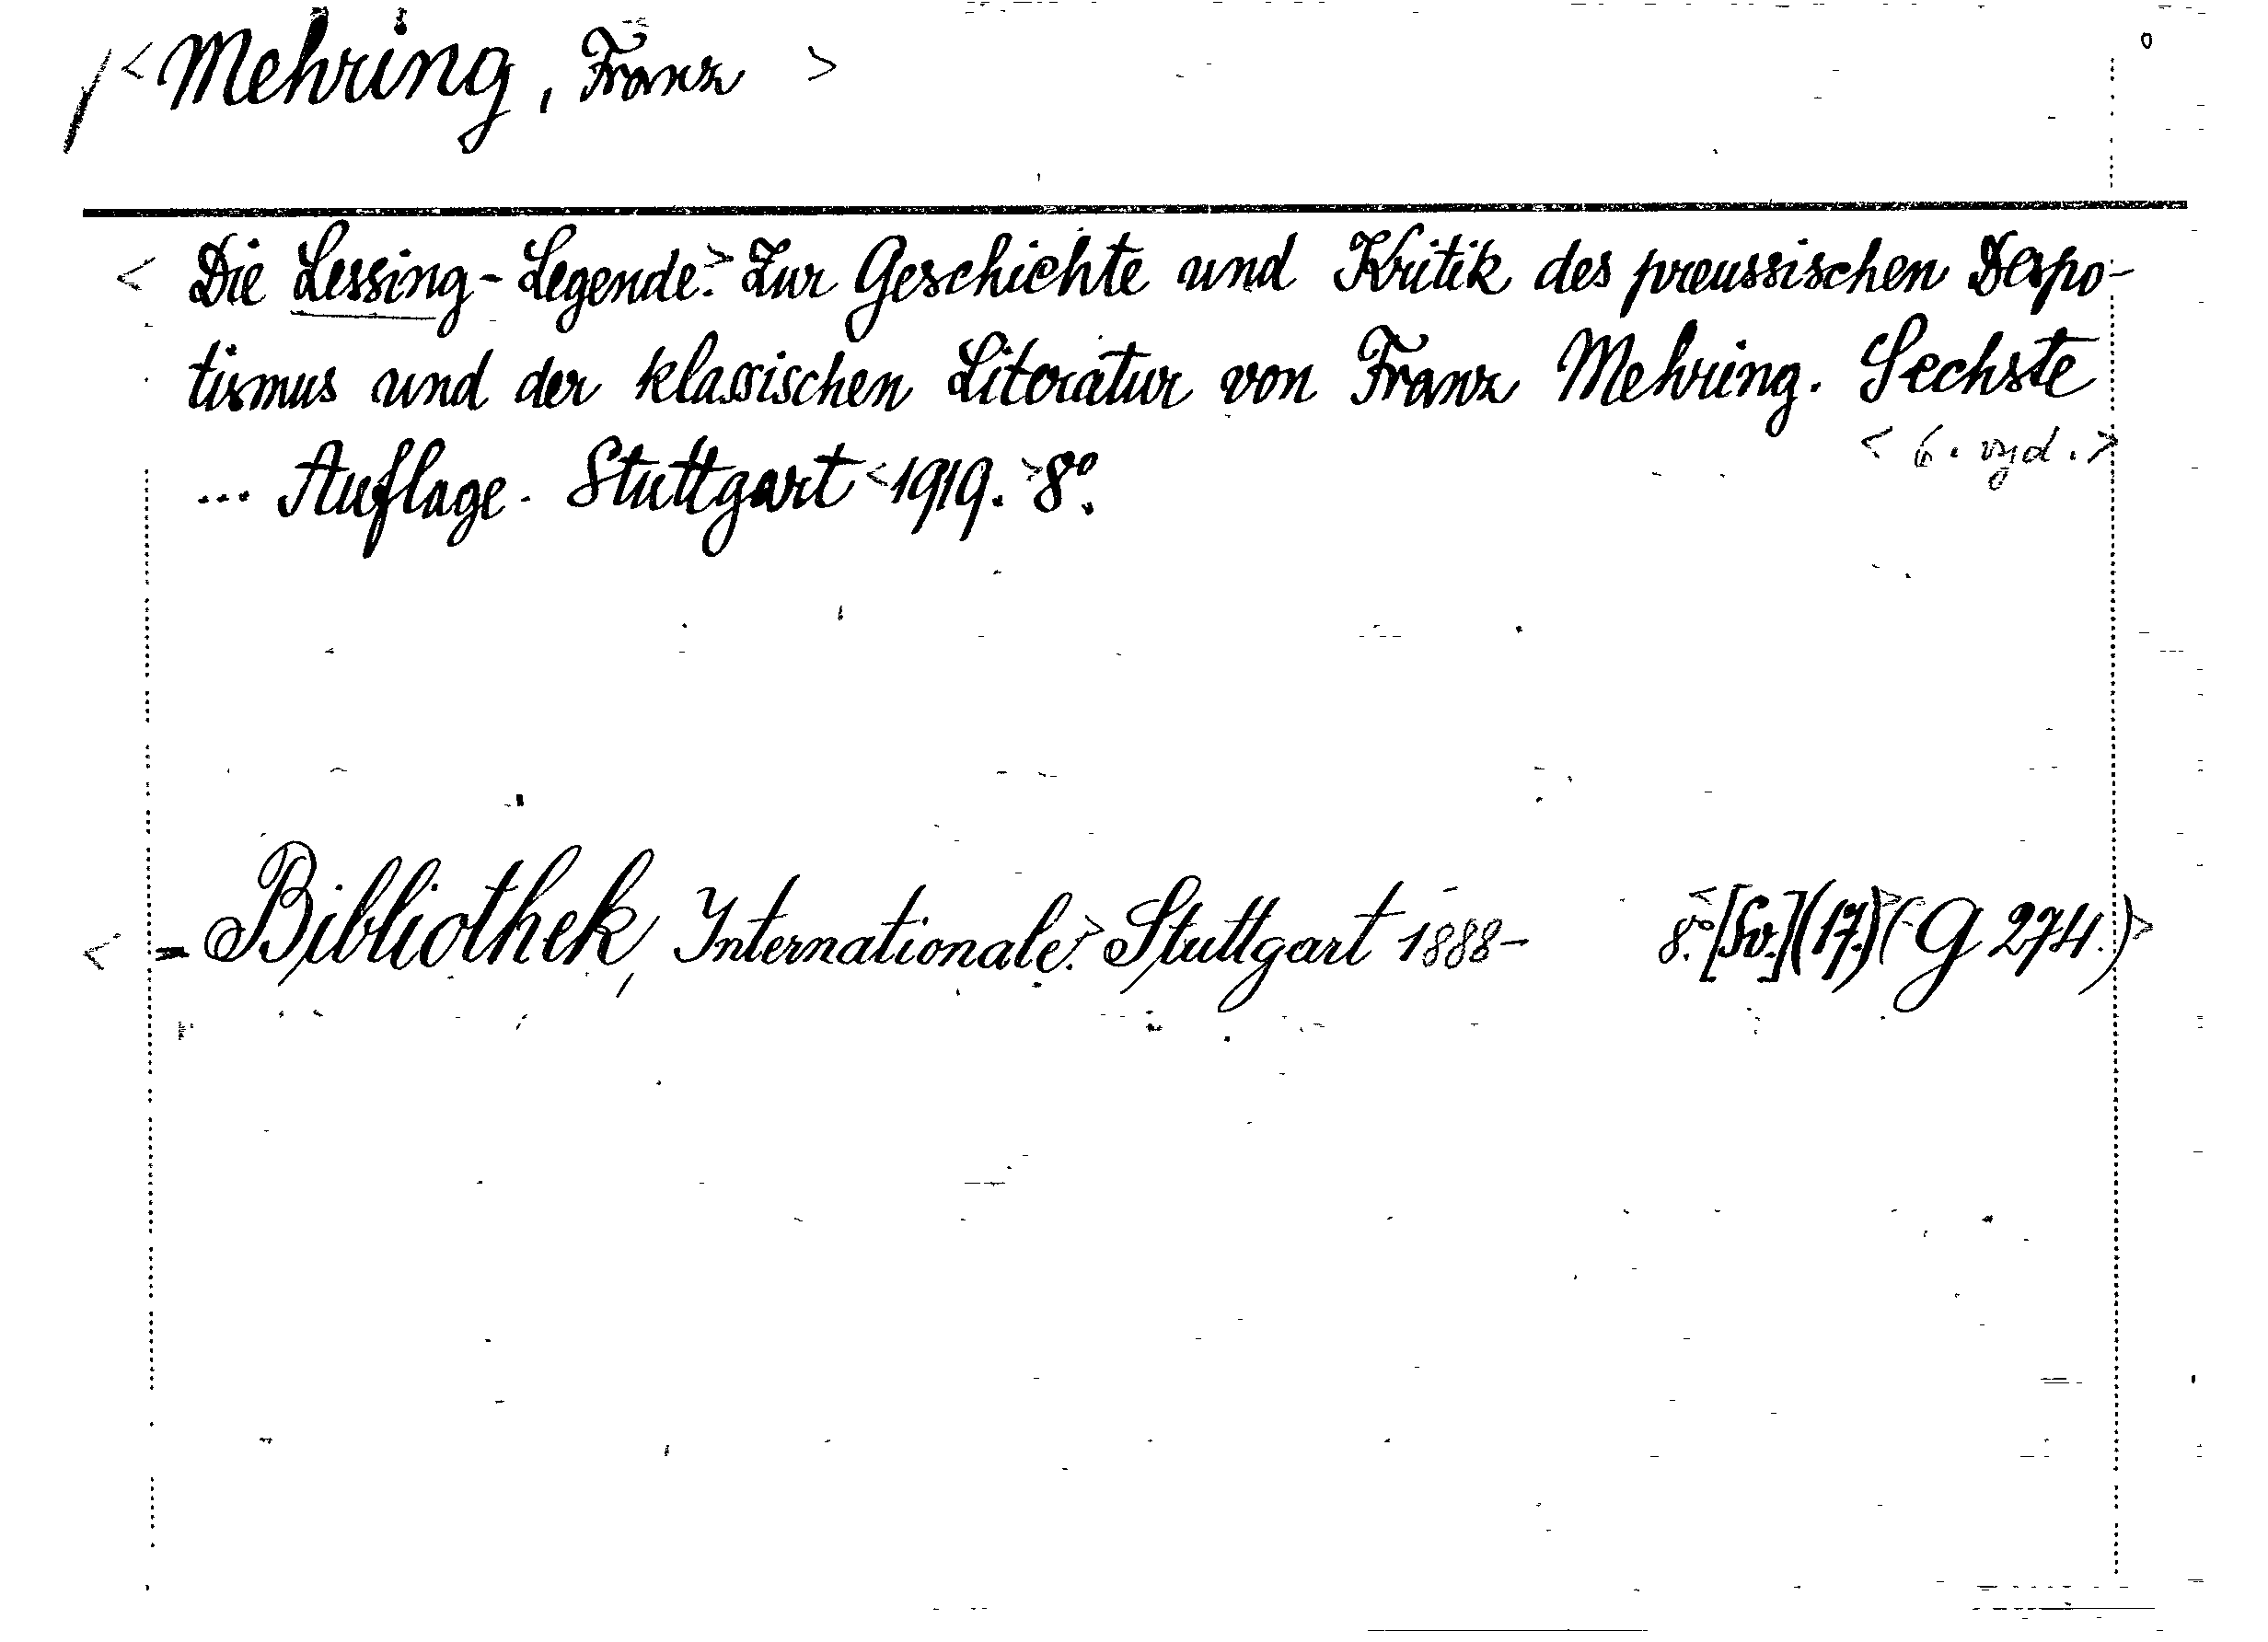 < Mehring, Franz >
< Die Lessing-Legende.> Zur Geschichte und Kritik des preussischen Despo-
tismus und der klassischen Literatur von Franz Mehring. Sechste
< 6. vyd. >
... Auflage. Stuttgart <1919.> 8°.
< = Bibliothek, Internationale.> Stuttgart 1888- 8.° <[Sv.](17.)> (G 274.)>